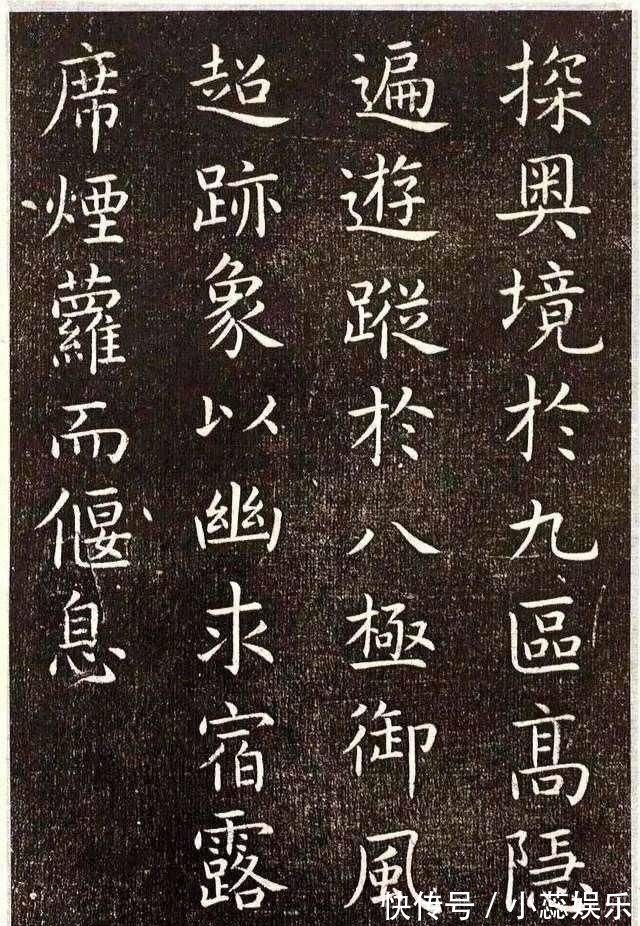 探奥境於九區高隠
遍遊蹤於八極御風
超跡象以幽求宿露
席煙蘿而偃息
快传号/小蕊娱乐